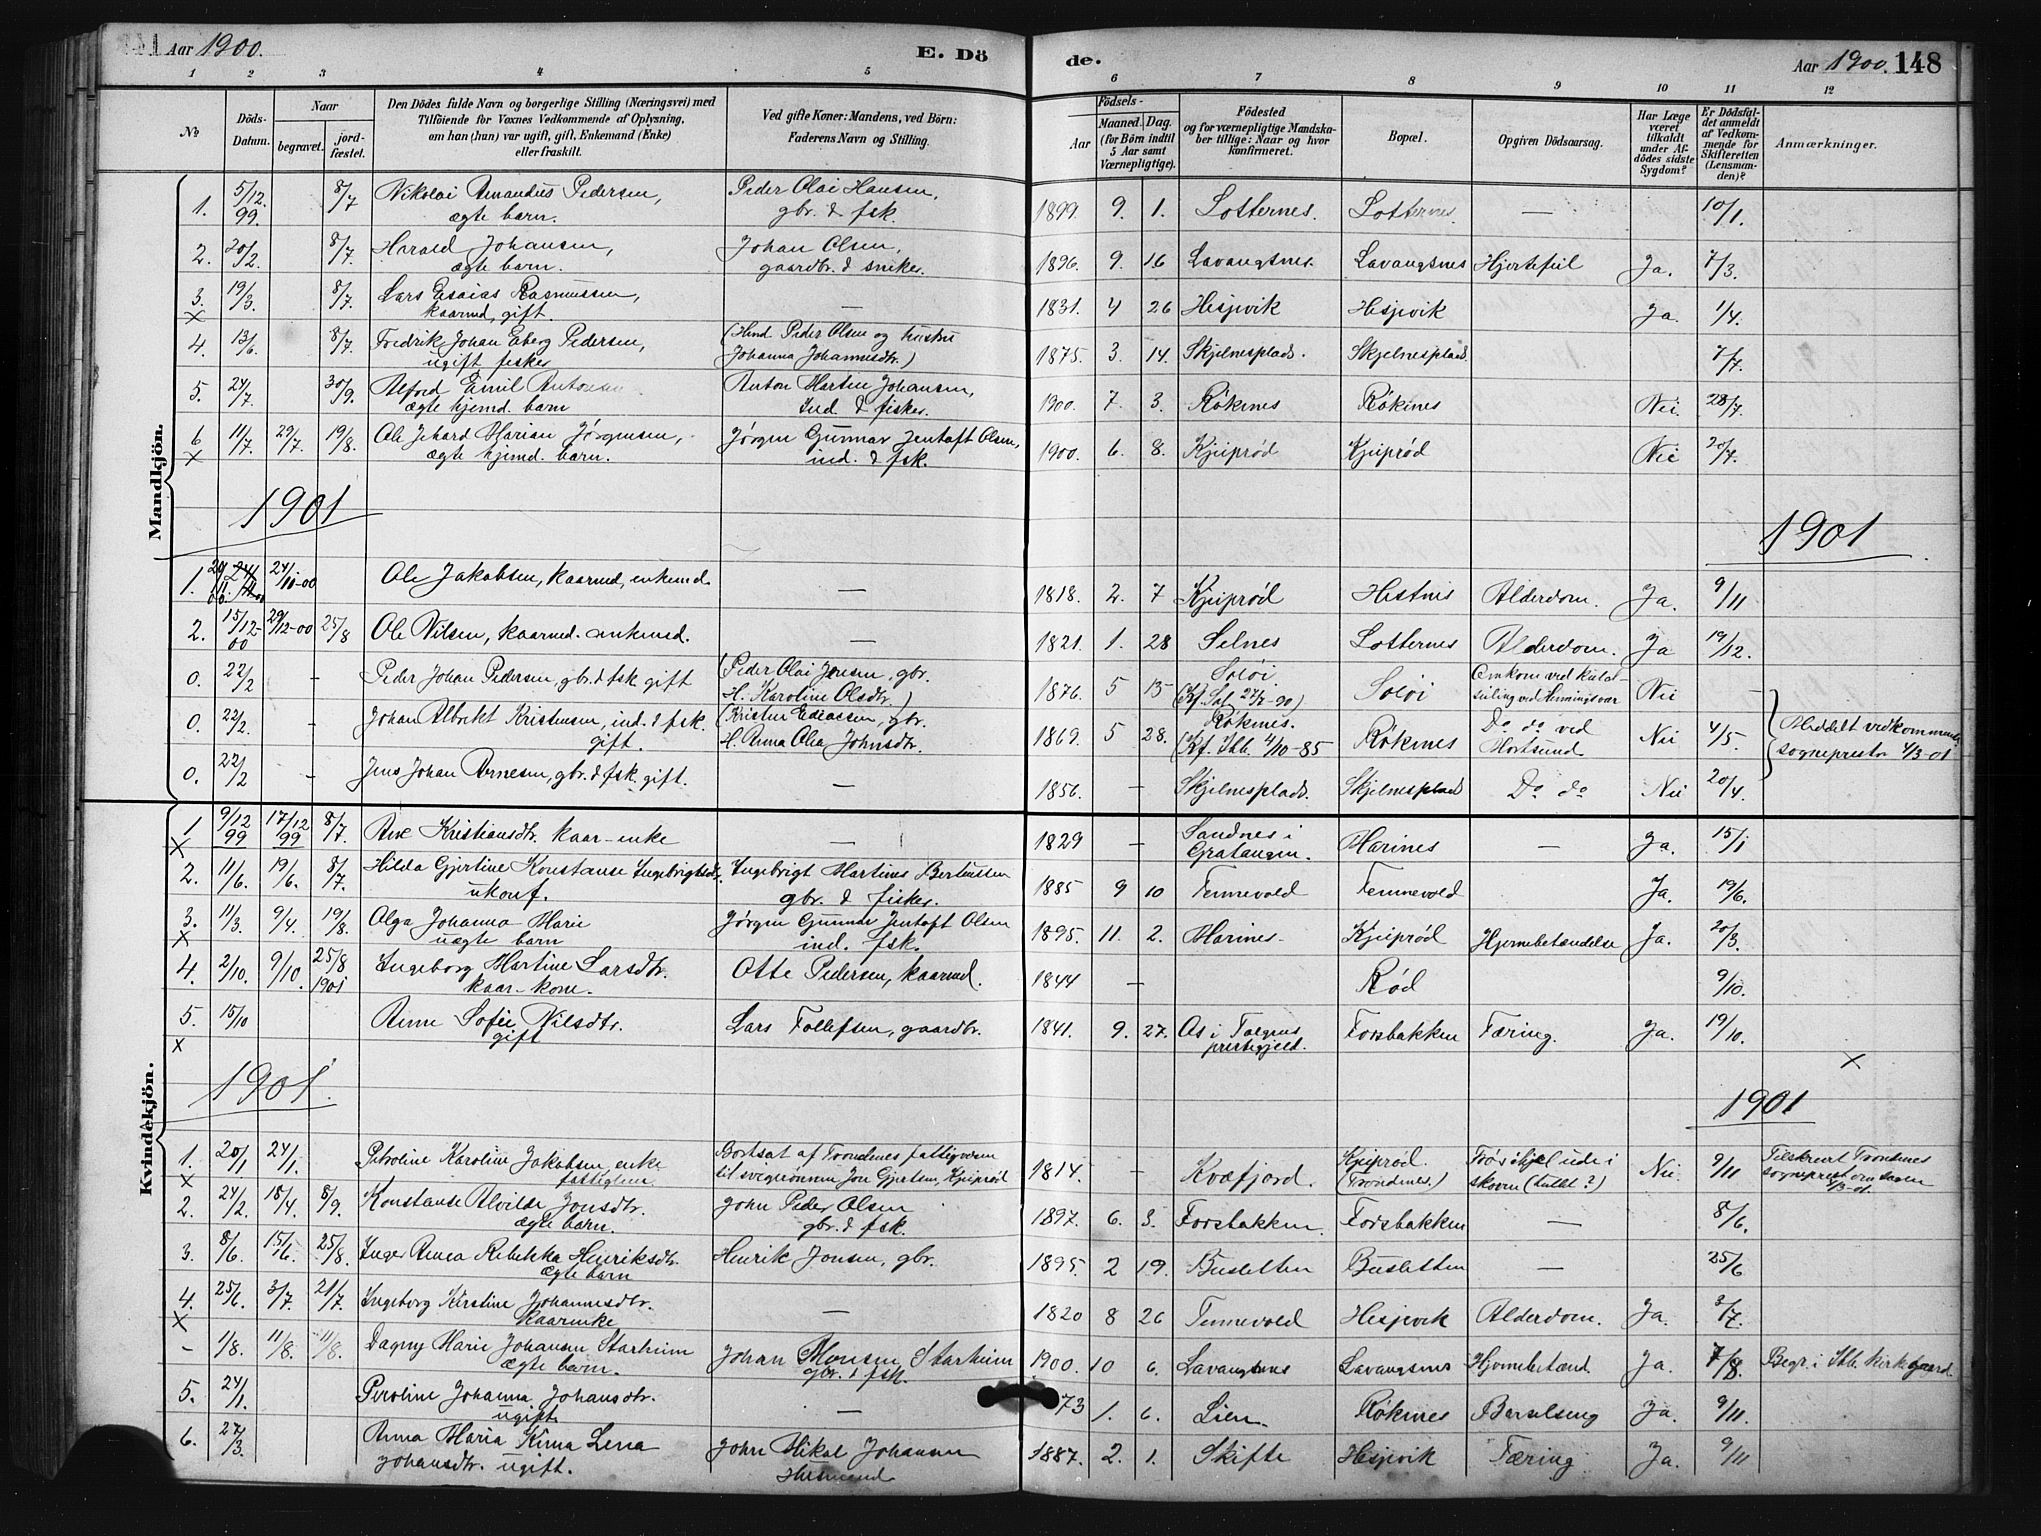 Aar 1900.
E. Dö
de.
Aar 1900. 148
1 2 3 4 5 6 7 8 9 10 11 12
No
Döds-Datum.
Naar
begravet.
jordfæstet.
Den Dödes fulde Navn og borgerlige Stilling (Næringsvei) med
Tilföiende for Voxnes Vedkommende af Oplysning,
om han (hun) var ugift, gift, Enkemand (Enke)
eller fraskilt.
Ved gifte Koner: Mandens, ved Börn:
Faderens Navn og Stilling.
Födsels-
Aar Maaned. Dag.
(for Börn indtil
5 Aar samt
Værnepligtige).
Födested
og for værnepligtige Mandska-
ber tillige: Naar og hvor
konfirmeret.
Bopæl.
Opgiven Dödsaarsag.
Har Læge
været
tilkaldt
under Af-
dödes sidste
Sygdom?
Er Dödsfal-
det anmeldt
af Vedkom-
mende for
Skifteretten
(Lensman-
den)?
Anmærkninger.
Mandkjön.
1. 5/12. 99. 8/7 Nikolai Amandus Pedersen, ægte barn. Peder Olai Hansen, gbr. & fsk. 1899. 9. 1. Lotternes. Lotternes. — 10/1.
2. 20/2. 8/7. Harald Johansen, ægte barn. Johan Olsen, gaardbr. & sneker. 1896. 9. 16 Lavangsnes. Lavangsnes Hjertefeil Ja. 7/3.
3. x 19/3. 8/7. Lars Esaias Rasmussen, kaarmd, gift. — 1831. 4 26 Hesjevik Hesjevik Ja. 1/4.
4. 13/6. 8/7. Fredrik Johan Eberg Pedersen, ugift fisker (Hmd Peder Olsen og hustru Johanna Johannesdtr.) 1875. 3. 14. Skjelnesplads. Skjelnesplads. 7/7.
5. 24/7. 30/9. Alfred Emil Antonsen ægte hjemd. barn Anton Martin Johansen, Ind. & fisker. 1900. 7. 3. Rökenes Rökenes Nei 28/7.
6 x 11/7. 29/7. 19/8. Ole Jehard Marian Jørgensen, ægte hjemd. barn. Jørgen Gunnar Jentoft Olsen, ind. & fsk. 1900. 6. 8. Kjeiprød Kjeiprød Nei 20/7.
1901
1901
1. 20/11. 00. 24/11-00 Ole Jakobsen, kaarmd, enkemd. — 1818. 2. 7 Kjeiprød Hestnes Alderdom. Ja. 9/11
2. 15/12-00 29/12-00 25/8 Ole Nilsen, kaarmd. enkemd. — 1821. 1. 28 Selnes Lotternes Alderdom. Ja 19/12.
0. 22/2 - Peder Johan Pedersen, gbr. & fsk gift (Peder Olai Jensen, gbr. H. Karoline Olsdtr.) 1876. 5 15 Soløi Soløi Omkom ved Kuldseiling ved Henningsvær Nei
0. 22/2. - Johan Albrikt Kristensen, ind. & fsk. gift. (Kristen Edeassen, gbr. H. Anna Olea Johnsdtr. 1869. 5 28. Rökenes. (Kf. Ibb. 4/10-85 Rökenes Do do ved Mortsund Nei 4/5. Meddelt vedkommende sogneprest 4/3-01
0. 22/2 - Jens Johan Arnesen, gbr. & fsk. gift. — 1856. - Skjelnesplads. Skjelnesplads Do do Nei 20/4.
Kvindekjön.
1 x 9/12 99 17/12 99 8/7. Ane Kristiansdtr. kaar-enke — 1829 - Sandnes i Gratangen. Marines - Ja. 15/1
2. 11/6. 19/6. 8/7. Hilda Gjertine Konstanse Ingebrigtsdtr. ukonf. Ingebrigt Martines Bertinssen gbr. & fisker. 1885 9 10 Tennevold Tennevold Ja. 19/6.
3. x 11/3. 9/4. 19/8. Olga Johanna Marie uægte barn Jørgen Gunnar Jentoft Olsen ind. fsk. 1895. 11. 2. Marines. Kjeiprød Hjernebetændelse Ja. 20/3.
4. 2/10. 9/10. 25/8 1901 Ingeborg Martine Larsdtr. kaar-kone. Otte Pedersen, kaarmd. 1844 - Rød 9/10.
5. x 15/10 Anne Sofie Nilsdtr. gift Lars Tollefsen, gaardbr. 1841. 9. 27. Os i Tolgens prestegjeld. Forsbakken Tæring. Ja. 19/10.
x
1901.
1901
1. x 20/1 24/1. Petroline Karoline Jakobsen, enke fattiglem Bortsat af Trondenes fattigvæsen til svigersønnen Jon Gjertsen, Kjeiprød 1814. - Kvæfjord. Kjeiprød. (Trondenes.) Frøs ihjel ude i skoven (tullet?) Nei. 9/11 Tilskrevet Trondenes sogneprest om sagen
2. 24/2. 18/4. 8/9. Konstanse Alvilde Jonsdtr. ægte barn. John Peder Olsen gbr. & fsk. 1897. 6. 3. Forsbakken. Forsbakken — 8/6.
3. 8/6. 15/6. 25/8. Inger Anna Rebekka Henriksdtr. ægte barn Henrik Jonsen, gbr. 1895. 2 19. Busletten Busletten — 25/6
4. x 25/6. 3/7. 21/7. Ingeborg Kirstine Johannesdtr. kaarenke — 1820 8 26 Tennevold Hesjevik Alderdom. Ja 3/7.
- 1/8. 11/8. 11/8. Dagny Marie Johansen Starheim ægte barn. Johan Monsen Starheim gbr. & fsk. 1900. 10 6. Lavangsnes Lavangsnes Hjernebetænd. Ja. 7/8. Begr. i Ibb. kirkegaard.
5. 24/1. Peroline Johanna Johansdtr. ugift — 73 1. 6. Lien. Rökenes Ja. 9/11.
6. 27/3. Anna Maria Kirna Lena Johansdtr. ugift. John Mikal Johansen Husmand 1887. 2. 1. Skifte Hesjevik Tæring Ja. 9/11